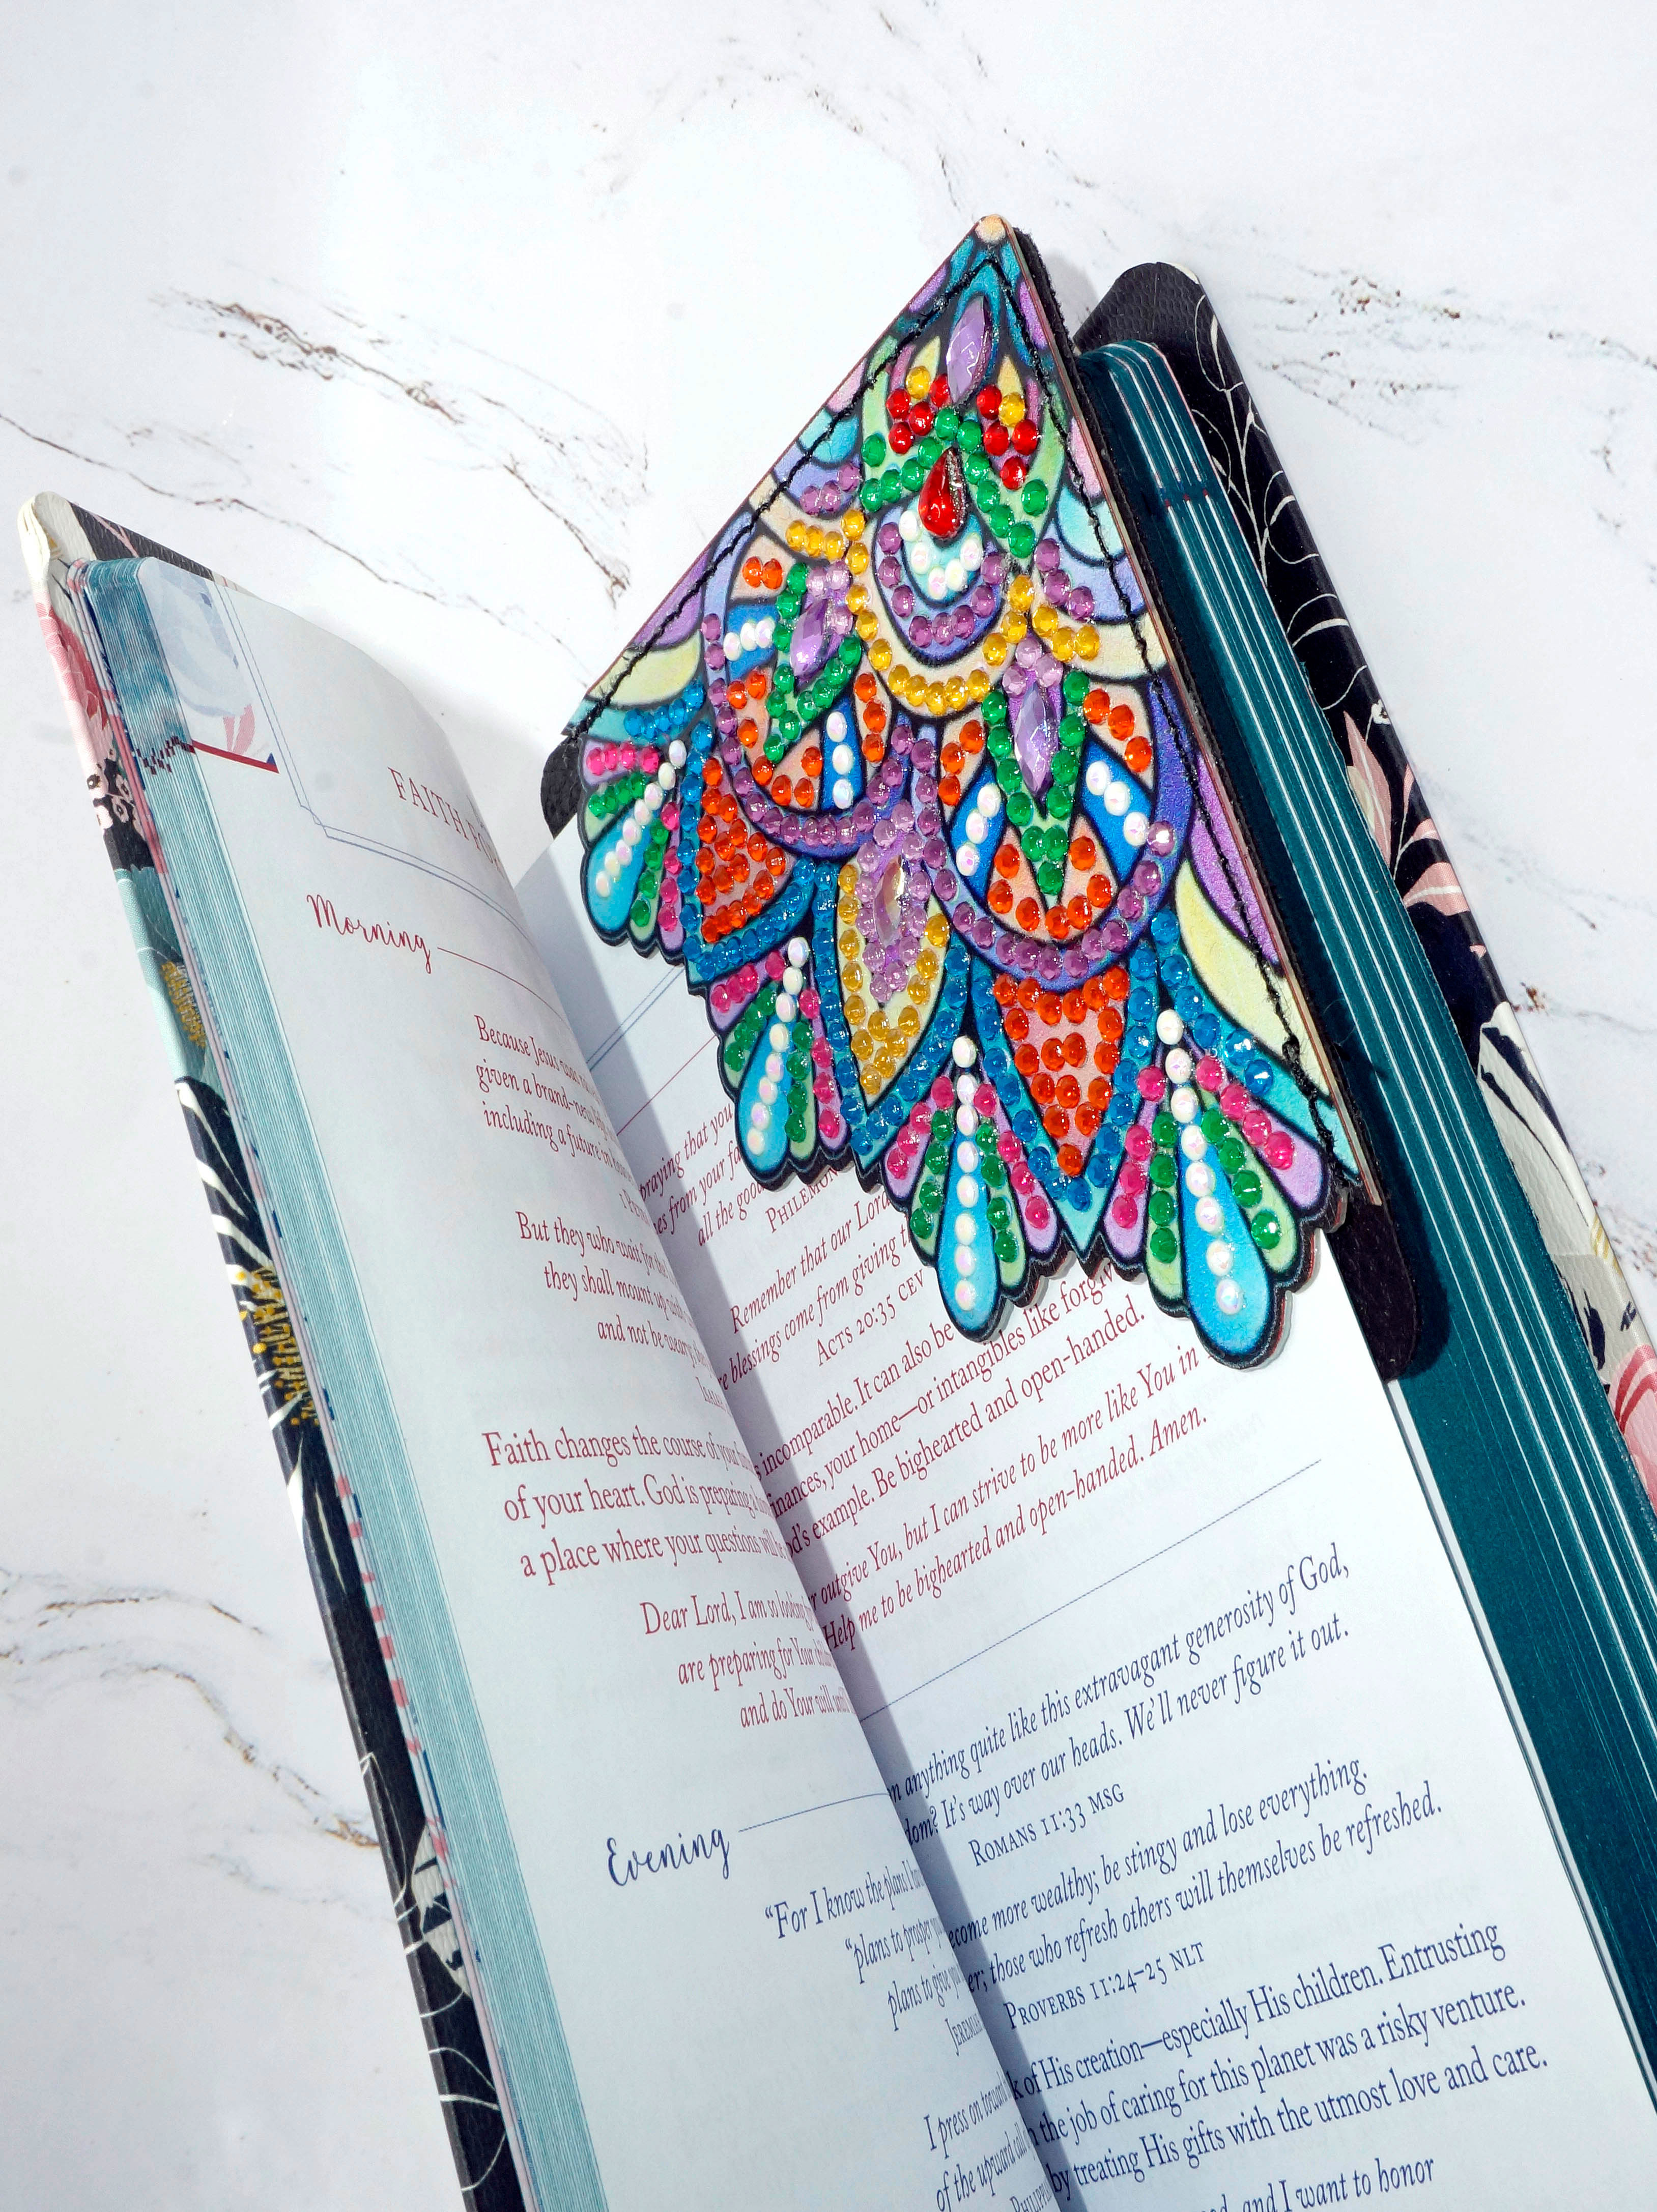 FAITH
Morning
Because Jesus
given a brand-new
including a future in
But they who wait for
they shall mount up
and not be weary
Faith changes the course of your
of your heart. God is preparing a
a place where your questions will
Dear Lord, I am so looking
are preparing for Your
and do Your will
Evening
“For I know the plans I
“plans to prosper
plans to give
I press on toward
of the upward call
praying that you
from your
all the good
PHILEMON
Remember that our Lord
blessings come from giving
ACTS 20:35 CEV
incomparable. It can also be
your home—or intangibles like
example. Be bighearted and open-handed.
outgive You, but I can strive to be more like You in
Help me to be bighearted and open-handed. Amen.
anything quite like this extravagant generosity of God,
It’s way over our heads. We’ll never figure it out.
ROMANS 11:33 MSG
become more wealthy; be stingy and lose everything.
those who refresh others will themselves be refreshed.
PROVERBS 11:24–25 NLT
of His creation—especially His children. Entrusting
the job of caring for this planet was a risky venture.
by treating His gifts with the utmost love and care.
and I want to honor